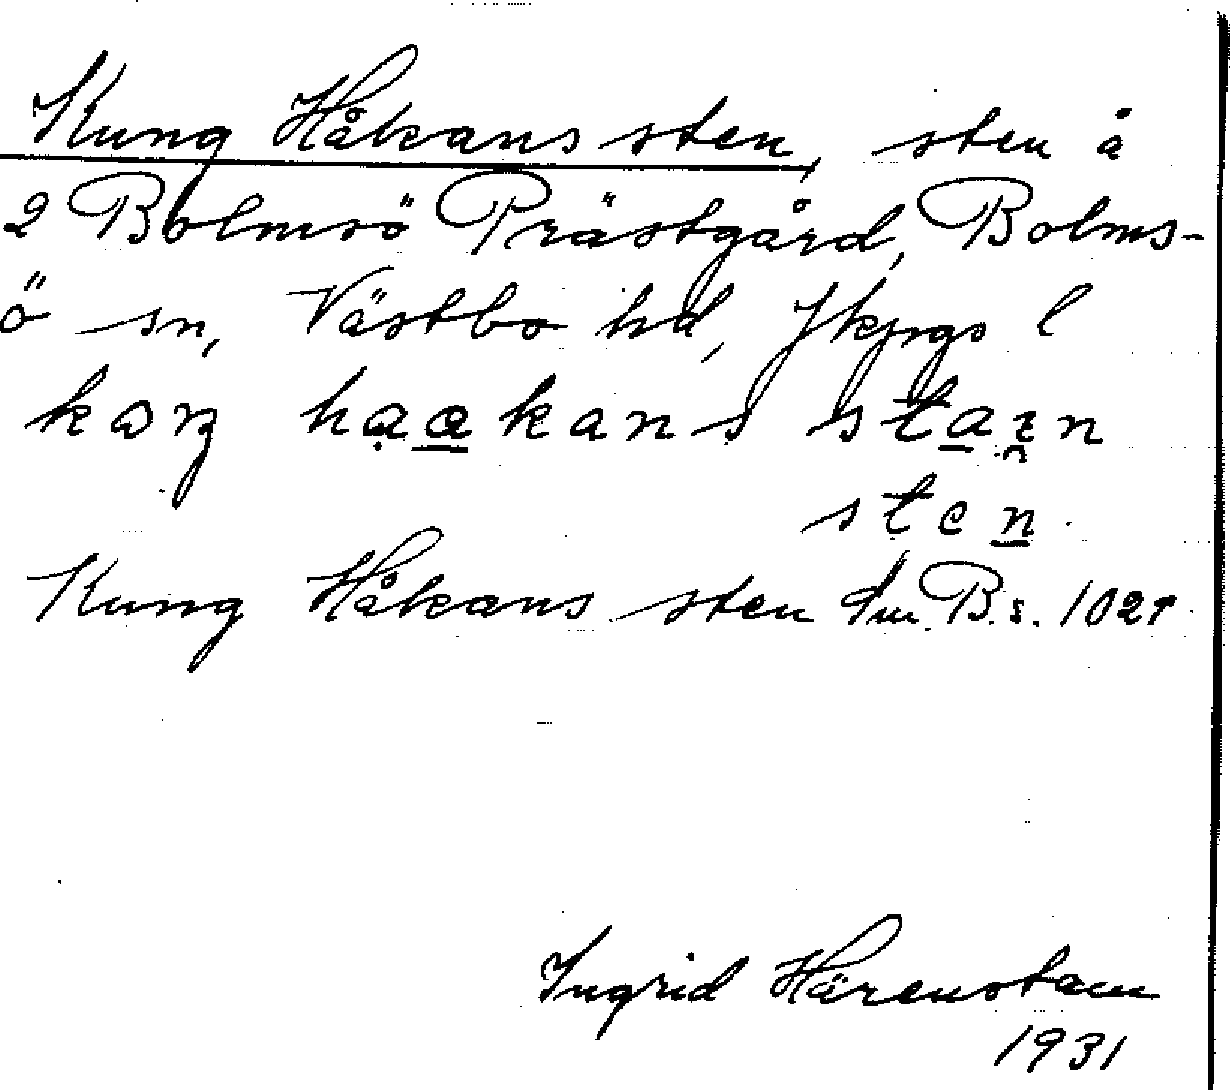 Kung Håkans sten, sten å
2 Bolmsö Prästgård, Bolms-
ö sn, Västbo hd, Jkpgs l
kaŋ haakans staɪn
sten
Kung Håkans sten B. s. 102
Ingrid Härenstam
1931